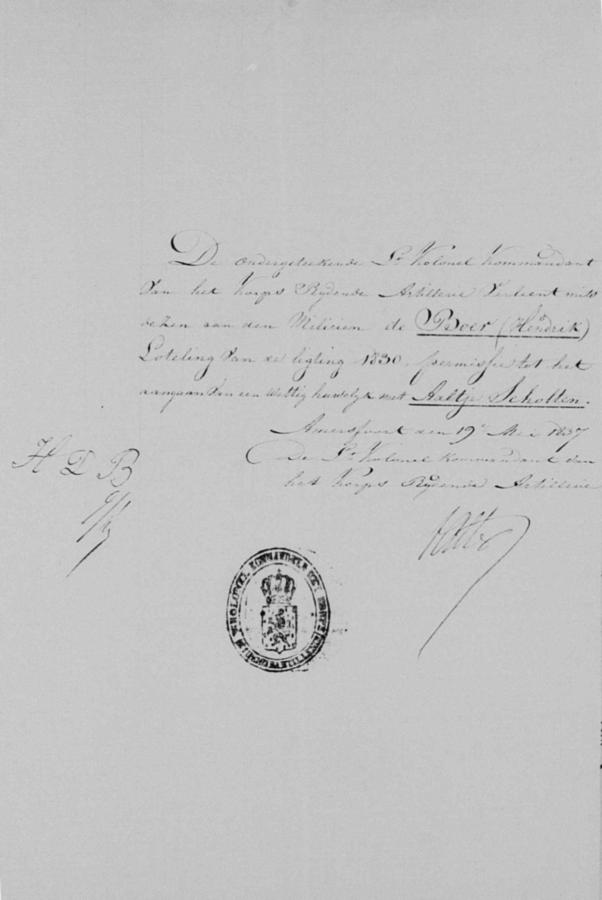 De ondergeteekende Lt Kolonel Kommandant
van het Korps Rydende Artillerie Verleent mits
dezen aan den Milicien de Boer (Hendrik)
Loteling van de ligting 1830. permissie tot het
aangaan van een Wettig huwelyk met Aaltje Scholten.
Amersfoort den 19e Mei 1837
De Lt Kolonel Kommandant van
het Korps Rydende Artillerie
H D B